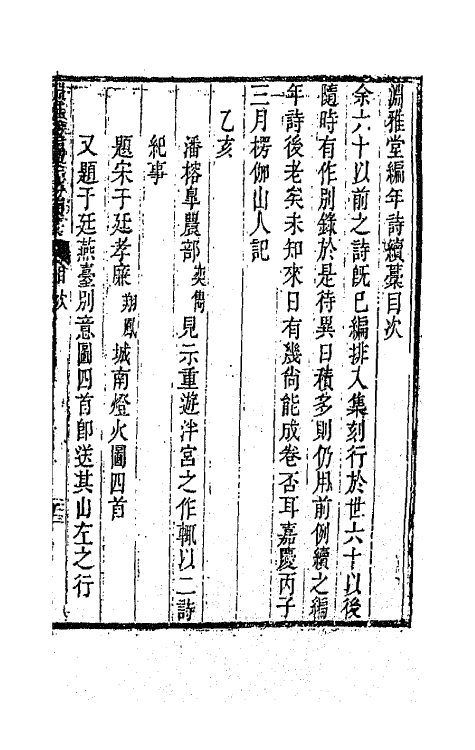 淵雅堂編年詩續藁目次
余六十以前之詩旣已編排入集刻行於世六十以後
隨時有作別錄於是待異日積多則仍用前例續之編
年詩後老矣未知來日有幾尙能成卷否耳嘉慶丙子
三月楞伽山人記
乙亥
潘榕臯農部奕雋見示重遊泮宮之作輒以二詩
紀事
題宋于廷孝廉翔鳳城南燈火圖四首
又題于廷燕臺別意圖四首卽送其山左之行